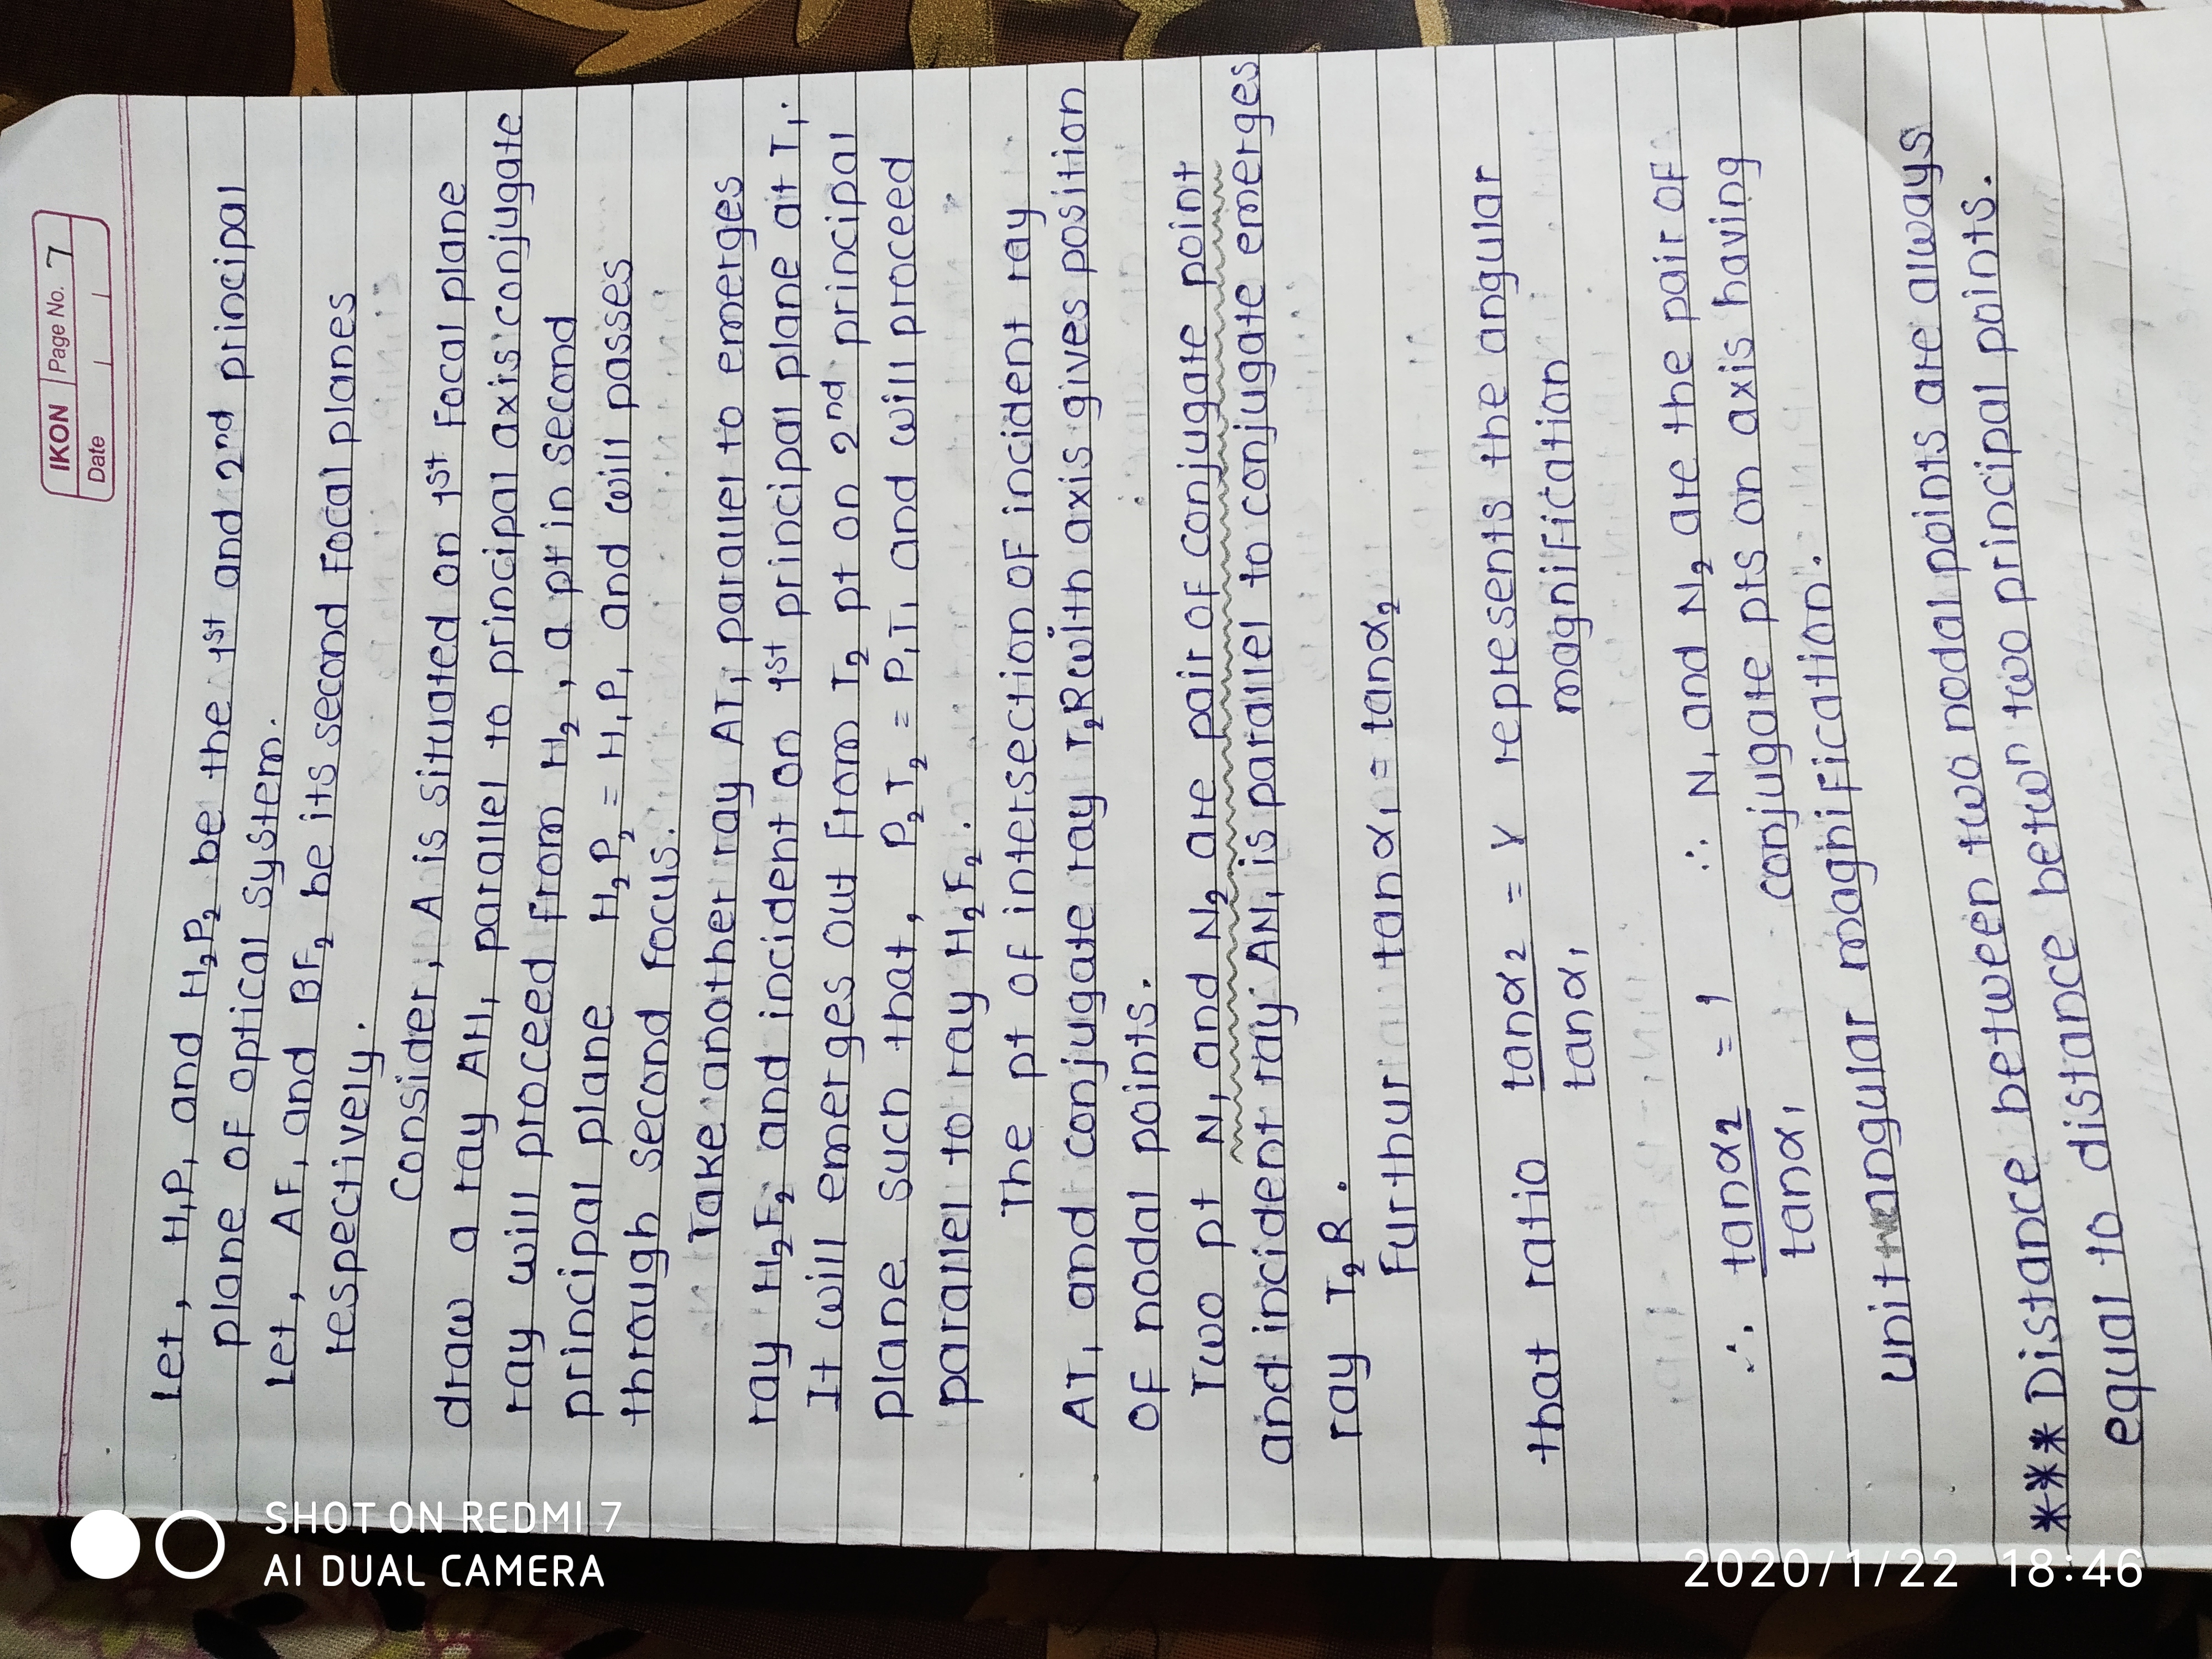 IKON Page No. 7
Date
Let, H₁P₁ and H₂P₂ be the 1st and 2nd principal
plane OF optical system.
Let, AF₁ and BF₂ be its second Focal planes
respectively.
Consider, A is situated on 1st Focal plane
draw a ray AH₁ parallel to principal axis conjugate
ray will proceed from H₂, a pt in second
principal plane H₂P₂ = H₁P₁ and will passes
through second focus.
Take another ray AT₁ parallel to emerges
ray H₂F₂ and incident on 1st principal plane at T₁.
It will emerges out from T₂ pt on 2nd principal
plane such that, P₂T₂ = P₁T₁ and will proceed
parallel to ray H₂F₂.
The pt OF intersection OF incident ray
AT₁ and conjugate ray T₂R with axis gives position
OF nodal points.
Two pt N₁ and N₂ are pair OF conjugate point
and incident ray AN₁ is parallel to conjugate emerges
ray T₂R.
Furthur tanα₁ = tanα₂
that ratio tanα₂ / tanα₁ = γ represents the angular
magnification
∴ tanα₂ / tanα₁ = 1 ∴ N₁ and N₂ are the pair OF
conjugate pts on axis having
unit angular magnification.
*** Distance between two nodal points are always
equal to distance betwⁿ two principal points.
SHOT ON REDMI 7
AI DUAL CAMERA
2020/1/22 18:46